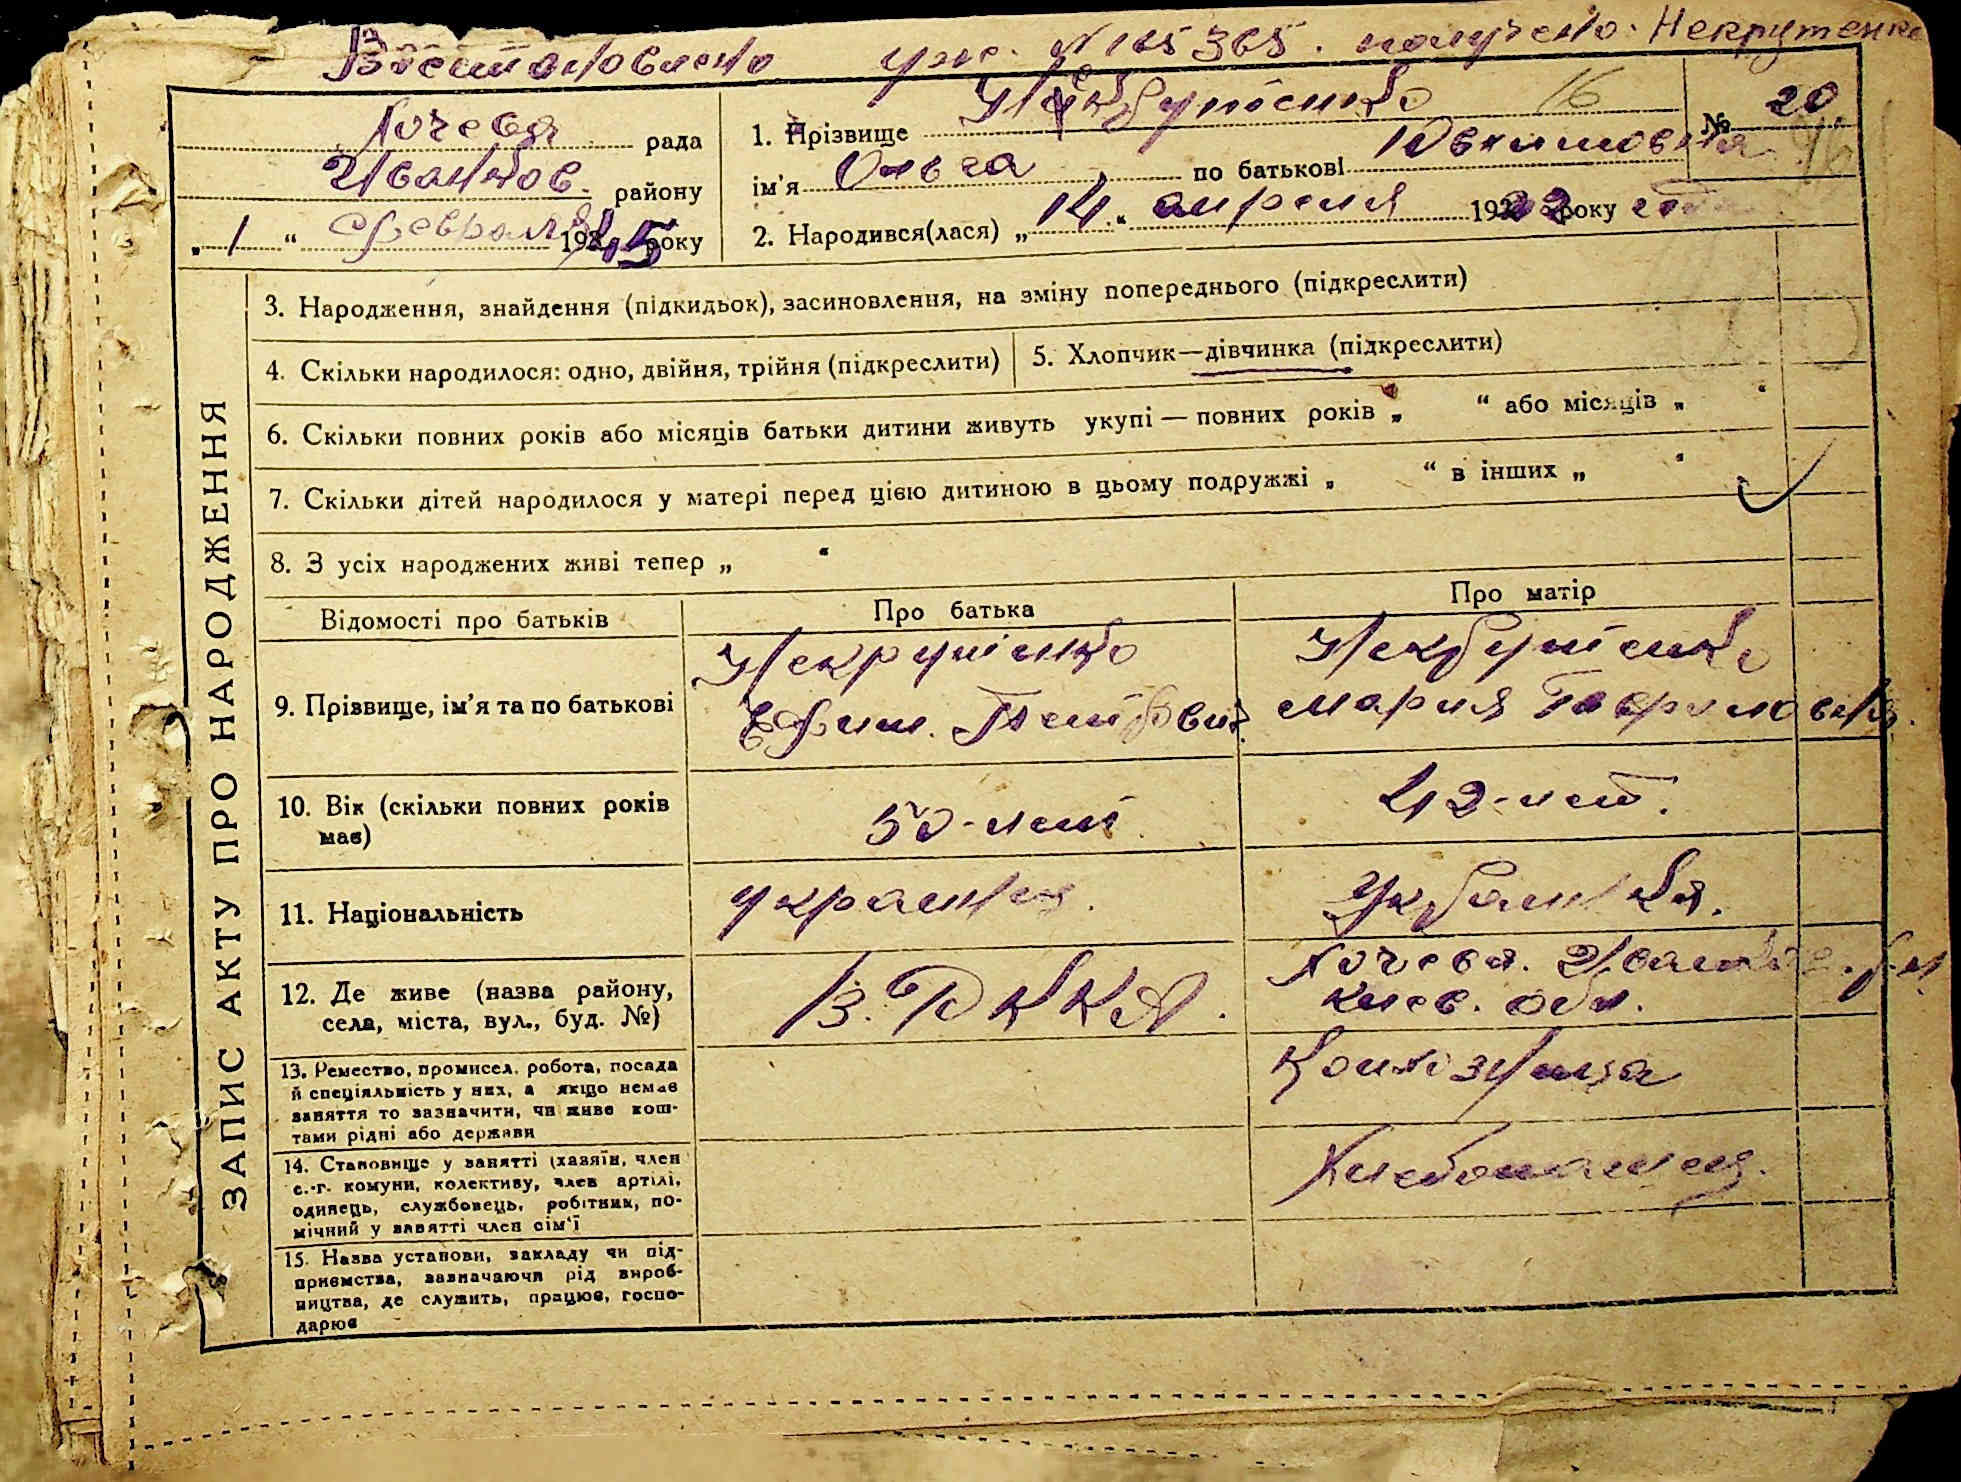 Восстановлено уже. N 165365. получено. Некрутенко
рада
Иванков. району
„ 1 “ февраля 1945 року
1. Прізвище Некрутенко 16
№ 20
ім'я Ольга по батькові
2. Народився(лася) „ 14 “ апреля 1922 року
ЗАПИС АКТУ ПРО НАРОДЖЕННЯ
3. Народження, знайдення (підкидьок), засиновлення, на зміну попереднього (підкреслити)
4. Скільки народилося: одно, двійня, трійня (підкреслити)
5. Хлопчик—дівчинка (підкреслити)
6. Скільки повних років або місяців батьки дитини живуть укупі — повних років „ “ або місяців „ “
7. Скільки дітей народилося у матері перед цією дитиною в цьому подружжі „ “ в інших „ “
8. З усіх народжених живі тепер „ “
Відомості про батьків
Про батька
Про матір
9. Прізвище, ім'я та по батькові
Некрутенко
Ефим.
Некрутенко
Мария Гавриловна.
10. Вік (скільки повних років
має)
50-лет
42-лет.
11. Національність
украинец.
Украинка.
12. Де живе (назва району,
села, міста, вул., буд. №)
В. РККА.
Киев. обл.
13. Ремество, промисел, робота, посада
й спеціяльність у них, а якщо немає
заняття то зазначити, чи живе кош-
тами рідні або держави
Колхозница
14. Становище у занятті (хазяїн, член
с.-г. комуни, колективу, член артілі,
одинець, службовець, робітник, по-
мічний у занятті член сім'ї
Хлебопашец.
15. Назва установи, закладу чи під-
приємства, зазначаючи рід вироб-
ництва, де служить, працює, госпо-
дарює